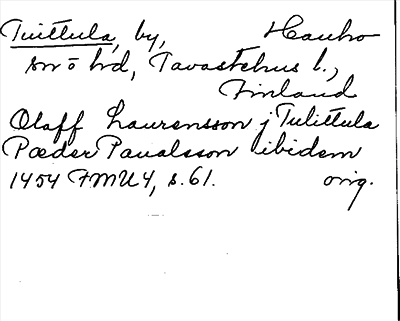 Tuittula, by, Hauho
sn o hd, Tavastehus l.,
Finland
Olaff Laurensson j Tulittula
Pæder Paualsson ibidem
1454 FMU4, s.61. orig.